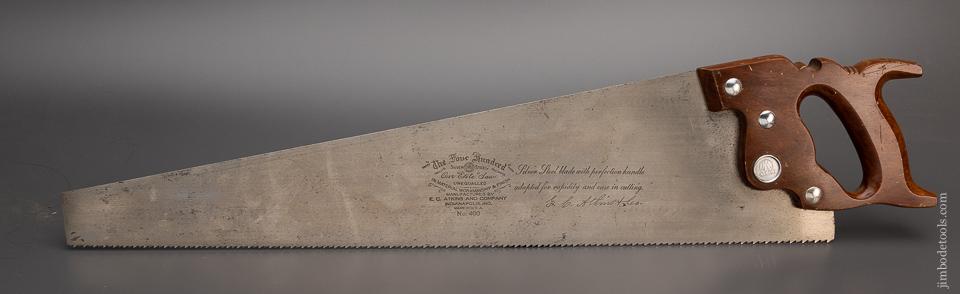 "The Four Hundred"
SILVER STEEL
Our Elite Saw
UNEQUALLED
IN MATERIAL WORKMANSHIP & FINISH
MANUFACTURED BY
E. C. ATKINS AND COMPANY
INDIANAPOLIS, IND.
No. 400
Silver Steel blade with perfection handle
adapted for rapidity and ease in cutting.
E. C. Atkins & Co.
jimbodetools.com